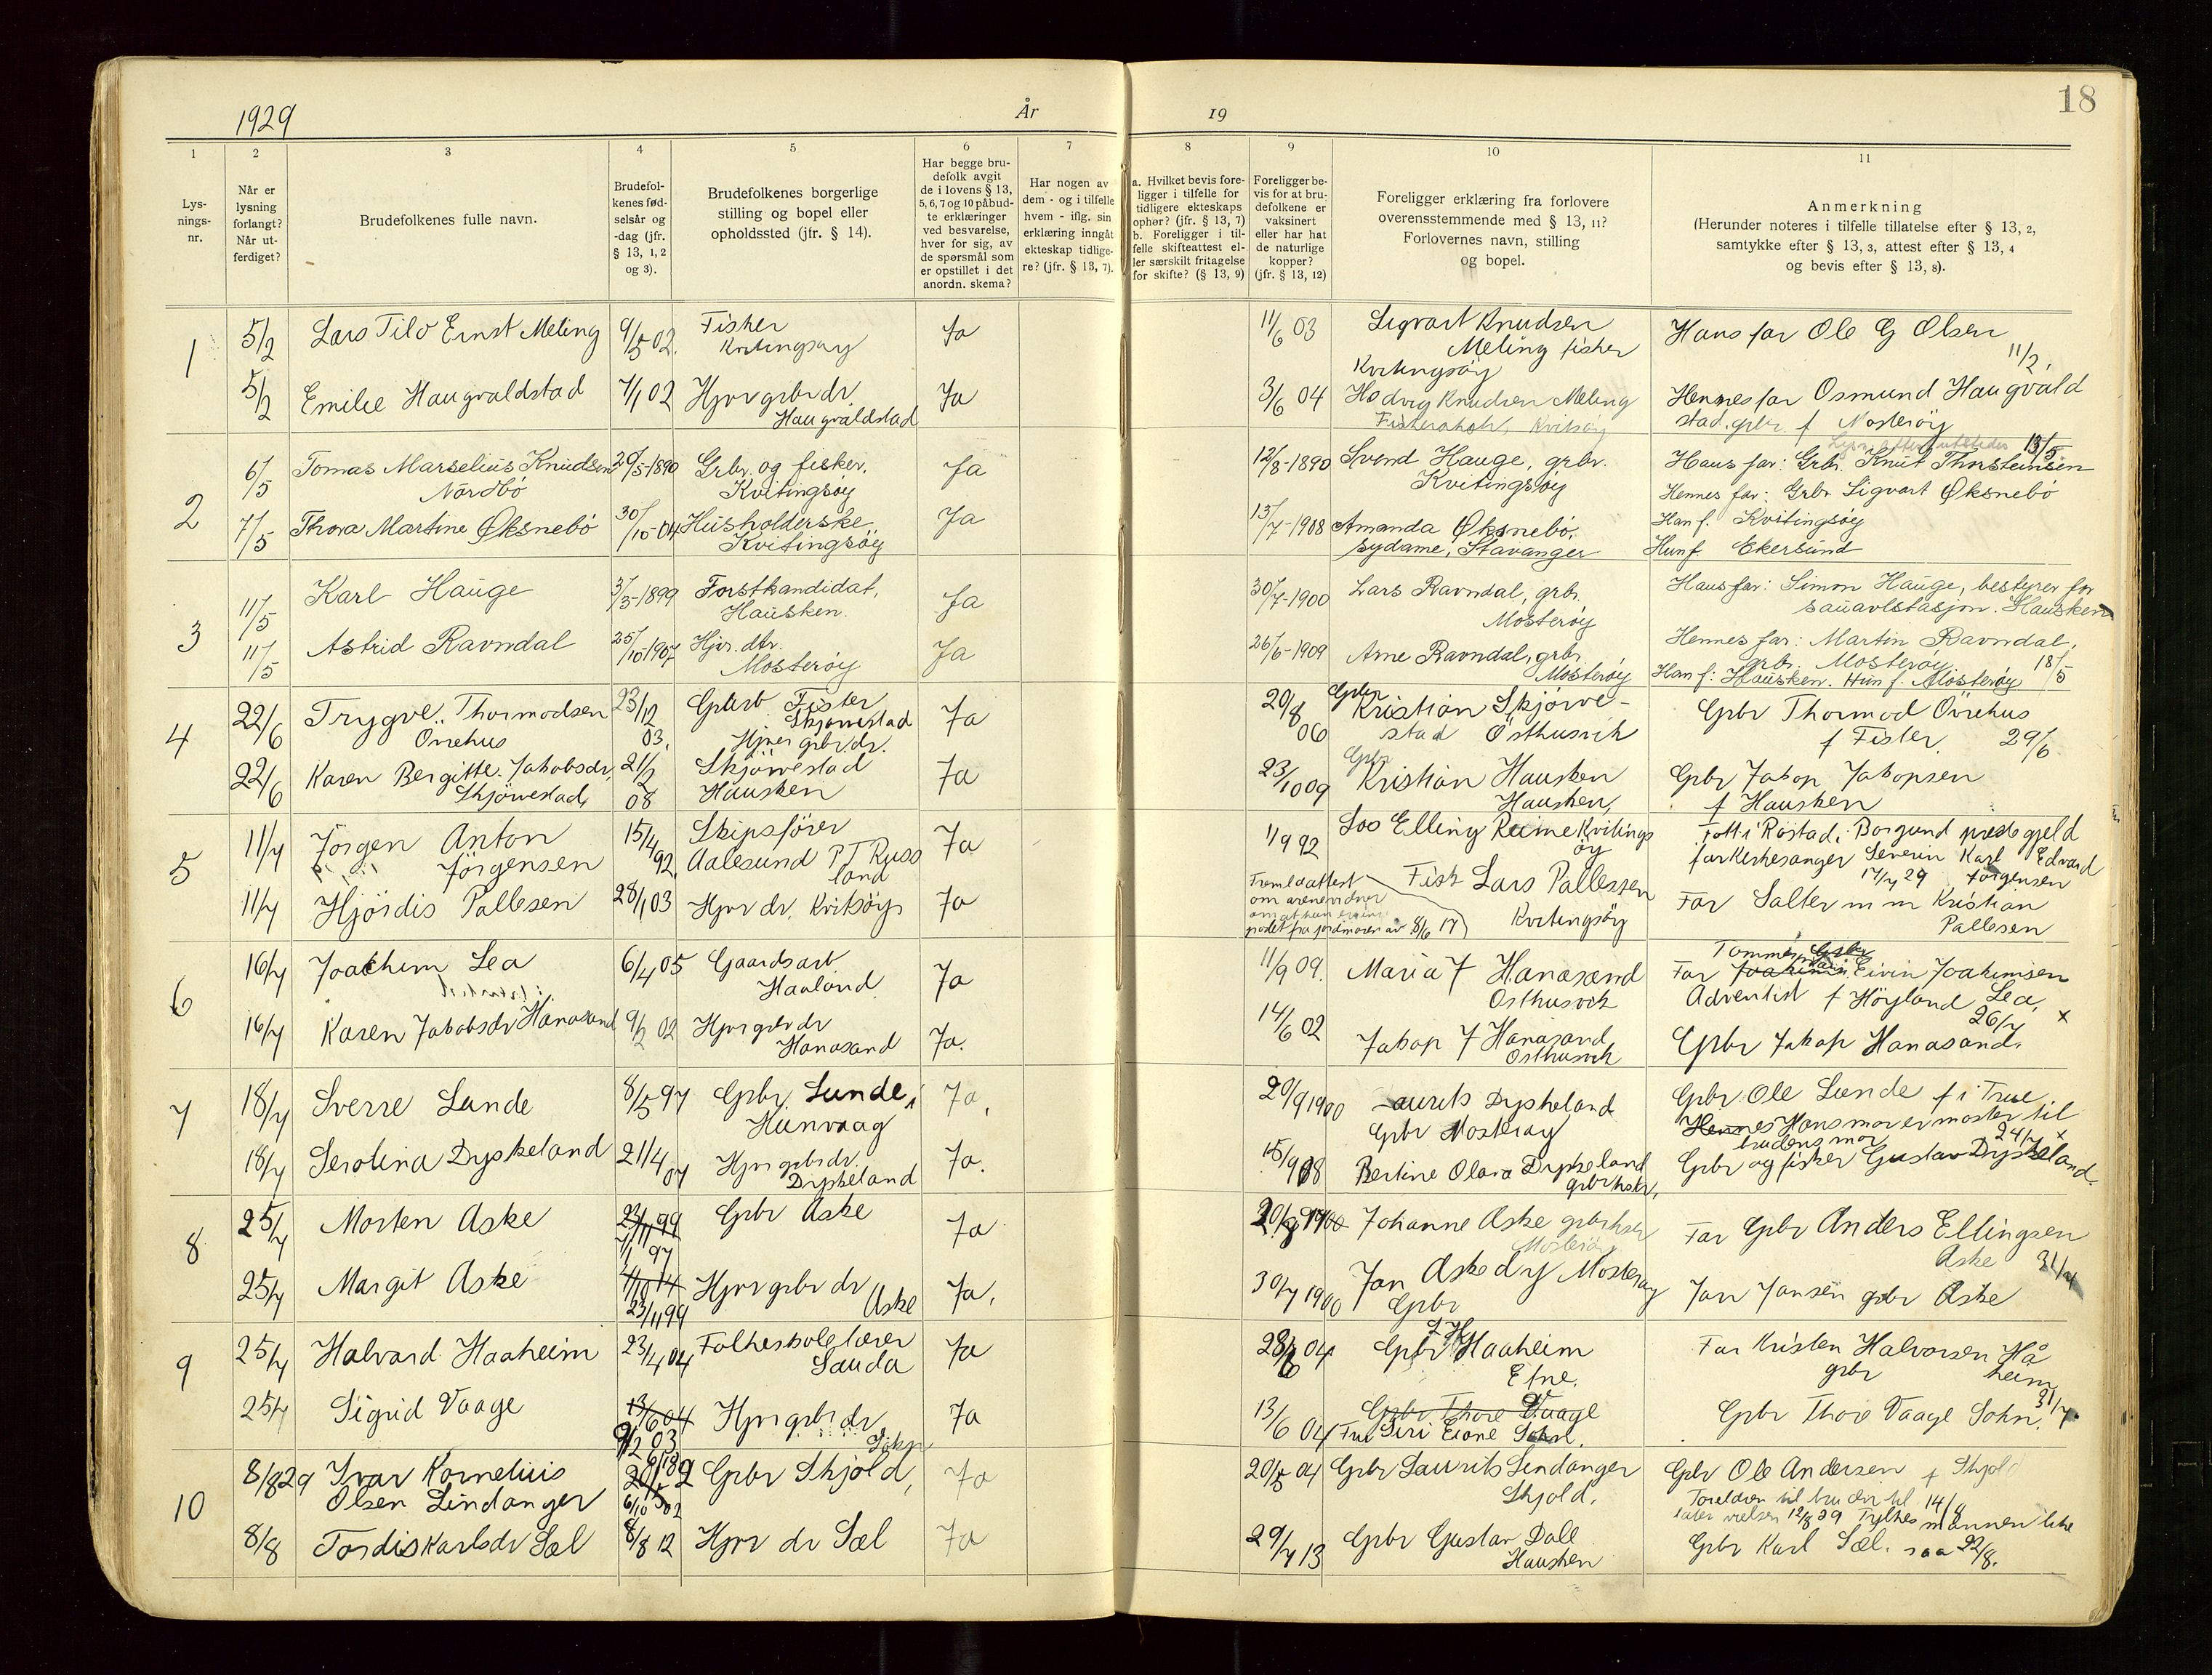 18
1929 År 19
1 2 3 4 5 6 7 8 9 10 11
Lys-
nings-
nr.
Når er
lysning
forlangt?
Når ut-
ferdiget?
Brudefolkenes fulle navn.
Brudefol-
kenes fød-
selsår og
-dag (jfr.
§ 13, 1, 2
og 3).
Brudefolkenes borgerlige
stilling og bopel eller
opholdssted (jfr. § 14).
Har begge bru-
defolk avgit
de i lovens § 13,
5, 6, 7 og 10 påbud-
te erklæringer
ved besvarelse,
hver for sig, av
de spørsmål som
er opstillet i det
anordn. skema?
Har nogen av
dem - og i tilfelle
hvem - iflg. sin
erklæring inngåt
ekteskap tidlige-
re? (jfr. § 13, 7).
a. Hvilket bevis fore-
ligger i tilfelle for
tidligere ekteskaps
ophør? (jfr. § 13, 7)
b. Foreligger i til-
felle skifteattest el-
ler særskilt fritagelse
for skifte? (§ 13, 9)
Foreligger be-
vis for at bru-
defolkene er
vaksinert
eller har hat
de naturlige
kopper?
(jfr. § 13, 12)
Foreligger erklæring fra forlovere
overensstemmende med § 13, 11?
Forlovernes navn, stilling
og bopel.
Anmerkning
(Herunder noteres i tilfelle tillatelse efter § 13, 2,
samtykke efter § 13, 3, attest efter § 13, 4
og bevis efter § 13, 8).
1
5/2 Lars Tilo Ernst Meling 9/5 02. Fisker Ja 11/6 03 Sigvart Knudsen Hans far Ole G Olsen
Kvitingsøy Meling fisker 11/2.
Kvitingsøy
5/2 Emilie Haugvaldstad 7/1 02 Hjvr grbr dr. Ja 3/6 04 Hedvig Knudsen Meling Hennes far Osmund Haugvald
Haugvaldstad Kvitsøy stad. grbr. f Mosterøy
2
6/5 Tomas Marselius Knudsen 29/5-1890 Grbr. og fisker. Ja 12/8-1890 Svend Hauge, grbr. 13/5
Nordbö Kvitingsøy Kvitingsøy Hans far: Grbr. Knut Thorsteinsen
Hennes far: Grbr Sigvart Øksnebö
7/5 Thora Martine Øksnebö 30/10-04 Husholderske. Ja 13/7-1908 Amanda Øksnebö, Han f. Kvitingsøy
Kvitingsøy sydame, Stavanger Hun f. Ekersund
3
11/5 Karl Hauge 3/3-1899 Forstkandidat, Ja 30/7-1900 Lars Ravndal, grbr. Hans far: Simon Hauge, bestyrer for
Hausken. Mosterøy sauavlstasjon. Hausken
11/5 Astrid Ravndal 25/10-1907 Hjvr. dtr. Ja 26/6-1909 Arne Ravndal, grbr. Hennes far: Martin Ravndal,
Mosterøy Mosterøy grbr. Mosterøy 18/5
Han f: Hausken. Hun f. Mosterøy
4
22/6 Trygve Thormodsen 23/12 Fister Ja 20/8 Grbr Kristian Skjörve- Grbr Thormod Övrehus
Övrehus 03. Skjörvestad 06 stad Østhusvik f Fister. 29/6
Hjvr grbr. dr.
22/6 Karen Bergitte Jakobsdr. 21/2 Skjörvestad Ja 23/10 09 Grbr Kristian Hausken Grbr Jakop Jakopsen
Skjörvestad 08 Hausken Hausken, f Hausken
5
11/7 Jörgen Anton 15/4 Skipsförer Ja 1/9 92 Los Elling Reime Kvitings Född i Rostad i Borgund prestegjeld
Jörgensen 92. Aalesund PT Russ øy far Kirkesanger Severin Karl Edvard
land 17/7 29 Jörgensen
11/7 Hjördis Pallesen 28/1 03 Hjvr dr. Kvitsöy Ja Fisk Lars Pallesen Far Salter m m Kristian
Kvitingsöy Pallesen
8/6 17
6
16/7 Joachim Lea 6/4 05 Gaardsarb Ja 11/9 09. Maria J Hanasand Far Eivin Joakimsen
Haaland Østhusvik Adventist f Höyland Lea,
26/7 x
16/7 Karen Jakobsdr Hanasand 9/2 02 Hjvr grbr dr Ja. 14/6 02 Jakop J Hanasand Grbr Jakop Hanasand.
Hanasand Østhusvik
7
18/7 Sverre Lunde 8/5 97 Grbr. Lunde i Ja, 20/9 1900 Laurits Dyskeland Grbr Ole Lunde
Hunvaag Grbr Mosteröy Hennes Hans mor er moster til
brudens mor 24/7 x
18/7 Serolina Dyskeland 21/4 07 Hjvr grbr dr. Ja. 15/9 08 Bertine Olava Dyskeland Grbr og fisker Gustav Dyskeland.
Dyskeland
8
25/7 Morten Aske 23/11 99 Grbr Aske Ja 1900 Johanne Aske Far Grbr Anders Ellingsen
1/1 97 Mosteröy Aske 31/7
25/7 Margit Aske Hjvr grbr dr Ja, 30/7 1900 Jan Aske Mosteröy Jan Jansen grbr Aske
23/11 99 Aske Grbr
9
25/7 Halvard Haaheim 23/4 04 Folkeskolelærer Ja 28/6 04 Grbr Haaheim Far Kristen Halvorsen Hå
Sauda Etne. grbr heim
31/7.
25/7 Sigrid Vaage 13/6 04 Hjvr grbr dr Ja 13/6 04 Grbr Thore Vaage Grbr Thore Vaage Sokn.
9/2 03 Sokn Fru Siri Eiane Sokn.
10
8/8 29 Ivar Kornelius Grbr Skjold, Ja 20/5 04 Grbr Laurits Lindanger Grbr Ole Andersen f Skjold
Olsen Lindanger 6/10 02 Skjold.
8/8 Tordis Karlsdr Sæl 8/8 12 Hjvr dr Sæl Ja 29/7 13 Grbr Gustav Dale Grbr Karl Sæl. 22/8.
Hausken